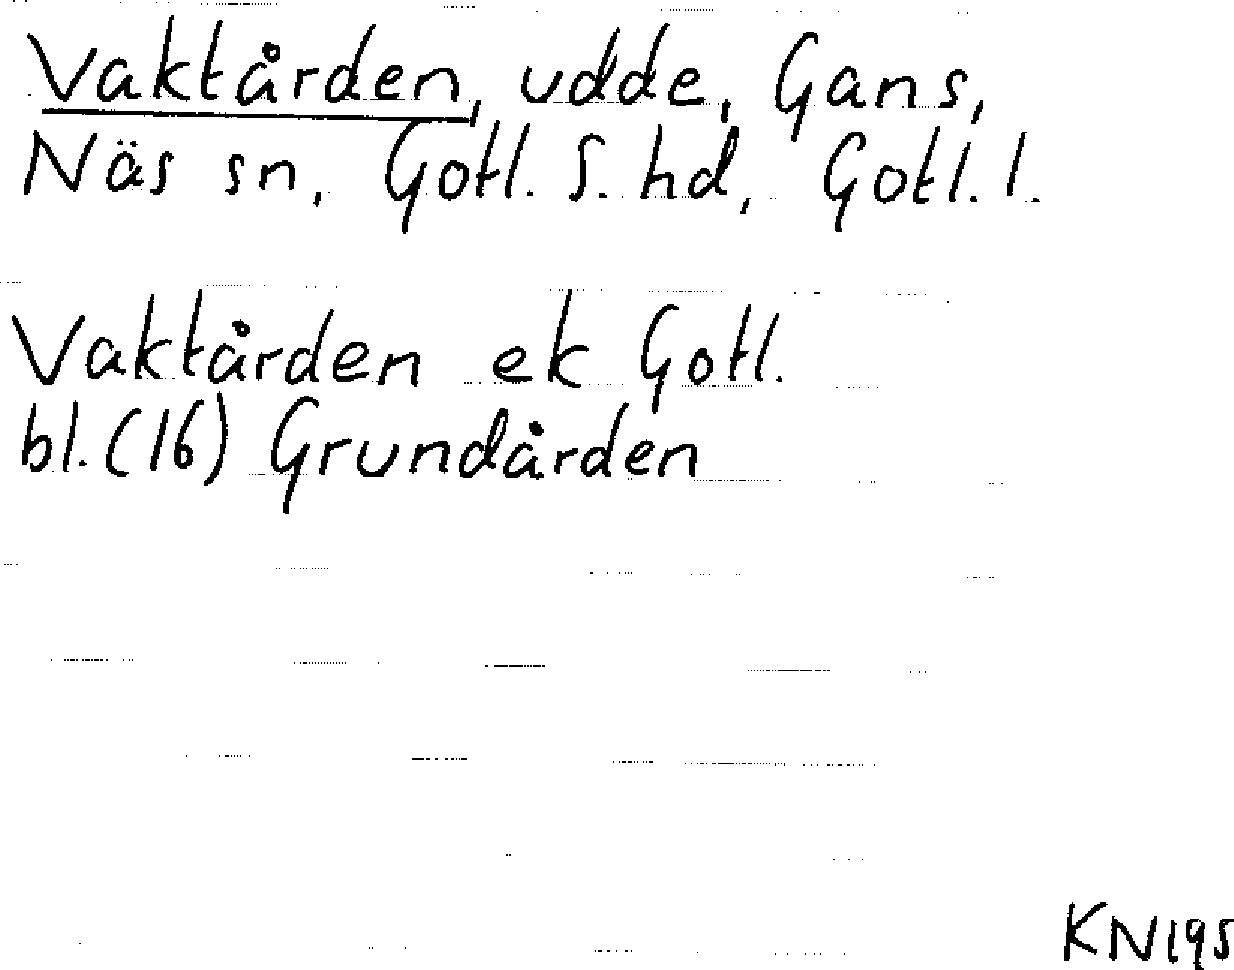 Vaktården, udde, Gans,
Näs sn, Gotl. S. hd, Gotl. l.
Vaktården ek Gotl.
bl. (16) Grundården
KN195